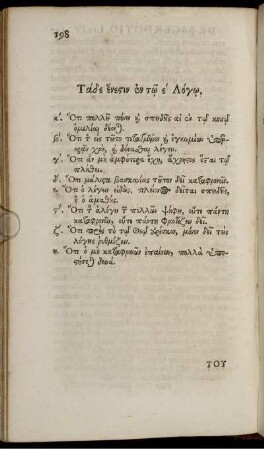 198
Τάδε ἔνεστιν ἐν τῷ ε΄ Λόγῳ,
α΄. Ὅτι πολλοῦ πόνου ἡ σπουδῆς αἱ ἐν τῷ κοινῷ
ὁμιλίαι δέον).
β΄. Ὅτι τ εἰς τοῦτο τεταγμένον ἡ ἐγκωμίων ὑπερ-
ορᾶν χρὴ, ἡ δύνασθαι λέγειν.
γ΄. Ὅτι ἂν μὴ ἀμφότερα ἔχῃ, ἄχρηστος ἔσται τῷ
πλήθει.
δ΄. Ὅτι μάλιστα βασκανίας τοῦτον δεῖ καταφρονεῖν.
ε. Ὅτι ὁ λόγους εἰδὼς, πλείονος δεῖται σπουδῆς,
ἢ ὁ ἀμαθής.
ϛ΄. Ὅτι τ ἀλόγου τ πολλῶν ψήφου, οὔτε πάντη
καταφρονεῖν, οὔτε πάντη φροντίζειν δεῖ.
ζ. Ὅτι πρὸς τὸ τῷ Θεῷ ἀρέσκον, μόνον δεῖ τοὺς
λόγους ῥυθμίζειν.
η. Ὅτι ὁ μὴ καταφρονῶν ἐπαίνων, πολλὰ ὑπο-
στήσε) δεινά.
ΤΟΥ